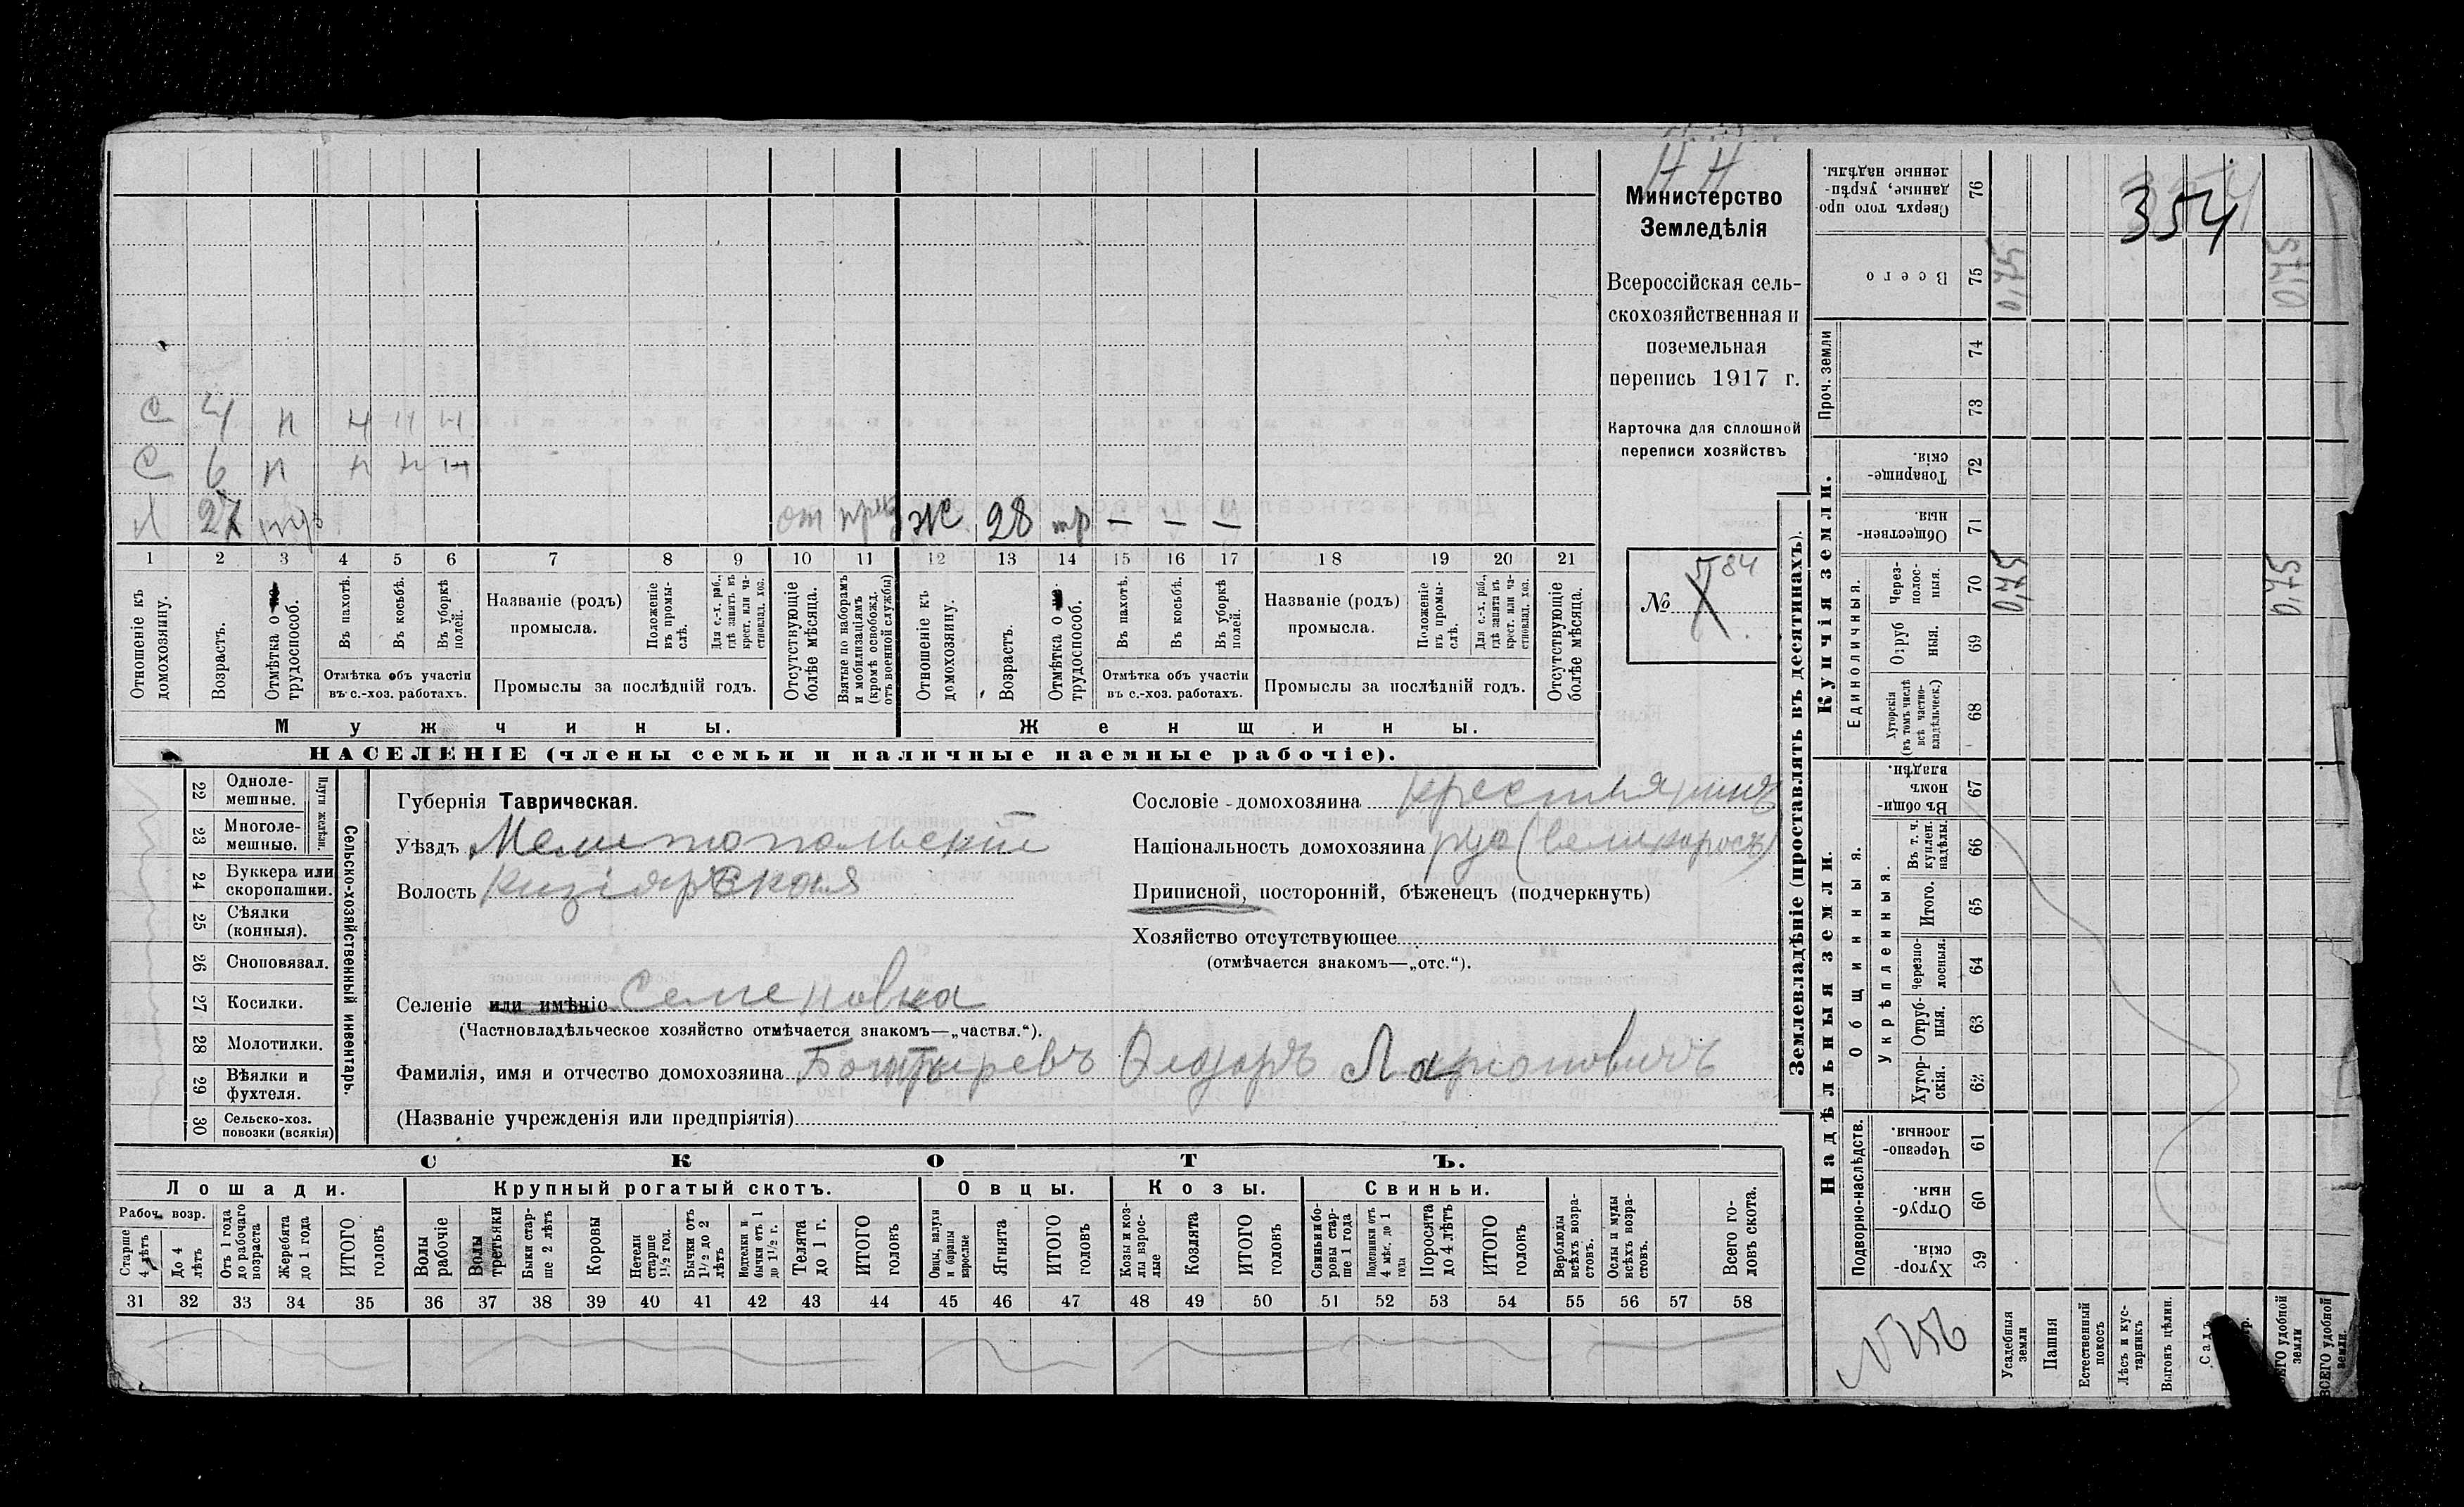 Н Н
Министерство
Земледѣлія
Всероссійская сель-
скохозяйственная и
поземельная
перепись 1917 г.
Карточка для сплошной
переписи хозяйствъ
№ 84
354
С 4 н н н н
С 6 н н н н
27 отм Ж 28 тр — — —
1 2 3 4 5 6 7 8 9 10 11 12 13 14 15 16 17 18 19 20 21
Отношеніе къ домохозяину.
Возрастъ.
Отмѣтка о трудоспособ.
Въ пахотѣ.
Въ косьбѣ.
Въ уборкѣ полей.
Отмѣтка объ участіи
въ с.-хоз. работахъ.
Названіе (родъ)
промысла.
Положеніе въ промы-
слѣ.
Для с.-х. раб., гдѣ занятъ въ крест. или ча-
стновлад. хоз.
Промыслы за послѣдній годъ.
Отсутствующіе болѣе мѣсяца.
Взятые по наборамъ и мобилизаціямъ (кромѣ освобожд. отъ военной службы)
Отношеніе къ домохозяину.
Возрастъ.
Отмѣтка о трудоспособ.
Въ пахотѣ.
Въ косьбѣ.
Въ уборкѣ полей.
Отмѣтка объ участіи
въ с.-хоз. работахъ.
Названіе (родъ)
промысла.
Положеніе въ промы-
слѣ.
Для с.-х. раб., гдѣ занята въ крест. или ча-
стновлад. хоз.
Промыслы за послѣдній годъ.
Отсутствующія болѣе мѣсяца.
Мужчины. Женщины.
НАСЕЛЕНІЕ (члены семьи и наличные наемные рабочіе).
Сельско-хозяйственный инвентарь.
Плуги желѣзн.
22 Одноле-
мешные.
23 Многоле-
мешные.
24 Буккера или
скоропашки.
25 Сѣялки
(конныя).
26 Сноповязал.
27 Косилки.
28 Молотилки.
29 Вѣялки и
фухтеля.
30 Сельско-хоз.
повозки (всякія)
Губернія Таврическая.
Уѣздъ Мелитопольскій
Волость Кизіярская
Сословіе домохозяина крестьянинъ
Національность домохозяина рус (великороссъ)
Приписной, посторонній, бѣженецъ (подчеркнуть)
Хозяйство отсутствующее
(отмѣчается знакомъ—„отс.“).
Селеніе или имѣніе Семеновка
(Частновладѣльческое хозяйство отмѣчается знакомъ—„частвл.“).
Фамилія, имя и отчество домохозяина Ларіоновичъ
(Названіе учрежденія или предпріятія)
СКОТЪ.
Лошади. Крупный рогатый скотъ. Овцы. Козы. Свиньи.
Рабоч. возр.
Старше 4 лѣтъ
До 4 лѣтъ
Отъ 1 года до рабочаго возраста
Жеребята до 1 года
ИТОГО головъ
Волы рабочіе
Волы третьяки
Быки стар-
ше 2 лѣтъ
Коровы
Нетели старше 1½ год.
Бычки отъ 1½ до 2 лѣтъ
Нетелки и бычки отъ 1 до 1½ г.
Телята до 1 г.
ИТОГО головъ
Овцы, валухи и бараны взрослые
Ягнята
ИТОГО головъ
Козы и коз-
лы взрос-
лые
Козлята
ИТОГО головъ
Свиньи и бо-
ровы стар-
ше 1 года
Подсвинки отъ 4 мѣс. до 1 года
Поросята до 4 лѣтъ
ИТОГО головъ
Верблюды всѣхъ возра-
стовъ.
Ослы и мулы всѣхъ возра-
стовъ.
Всего го-
ловъ скота.
31 32 33 34 35 36 37 38 39 40 41 42 43 44 45 46 47 48 49 50 51 52 53 54 55 56 57 58
Землевладѣніе (проставлять въ десятинахъ).
Купчія земли.
Надѣльныя земли.
Проч. земли
Единоличныя.
Общинныя.
Укрѣпленныя.
Подворно-наслѣдств.
Сверхъ того про-
данные, укрѣп-
ленные надѣлы. 76
Всего 75 0,75 0,75
74
73
Товарище-
скія. 72
Обществен-
ныя. 71
Через-
полос-
ныя. 70 0,75 0,75
Отруб
ныя. 69
Хуторскія (въ томъ числѣ всѣ частно-
владѣльческ.) 68
Въ общи-
номъ
владѣн. 67
Въ т. ч.
куплен.
надѣлы. 66
Итого. 65
Черезпо-
лосныя. 64
Отруб-
ныя. 63
Хутор-
скія. 62
Черезпо-
лосныя. 61
Отруб-
ныя. 60
Хутор-
скія. 59
№ 156
Усадебныя земли
Пашня
Естественный покосъ
Лѣсъ и кус-
тарникъ
Выгонъ цѣлин.
Садъ
удобной земли
ВСЕГО удобной земли.